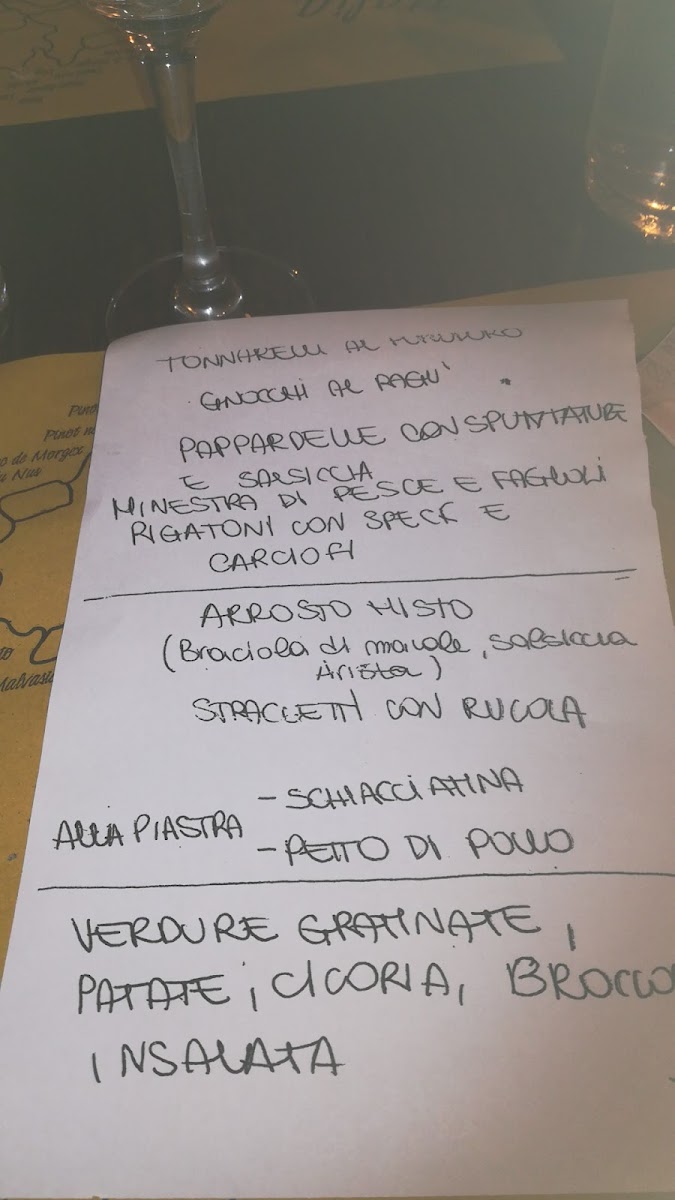 TONNARELLI AL
GNOCCHI AL RAGU'
PAPPARDELLE CON SPUNTATURE
E SALSICCIA
MINESTRA DI PESCE E FAGIOLI
RIGATONI CON SPECK E
CARCIOFI
ARROSTO MISTO
(Braciola di maiale, salsiccia
Arista)
STRACCETTI CON RUCOLA
- SCHIACCIATINA
ALLA PIASTRA
- PETTO DI POLLO
VERDURE GRATINATE,
PATATE, CICORIA, BROCCO
INSALATA
Pinot
Pinot n
o de Morgex
Nus
Malvasi